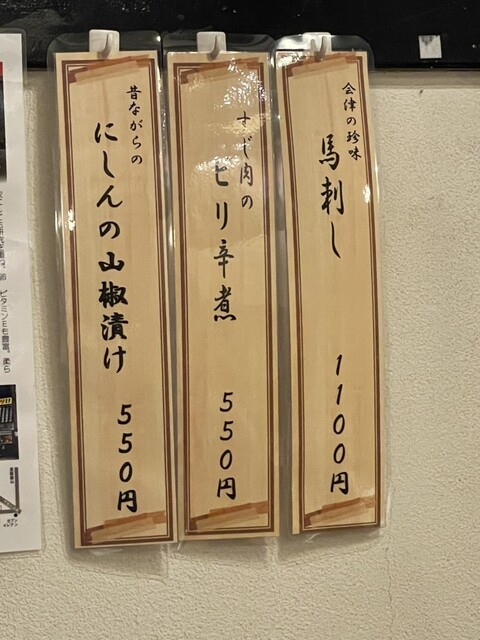 会津の珍味
馬刺し
1100円
すじ肉の
ピリ辛煮
550円
昔ながらの
にしんの山椒漬け
550円